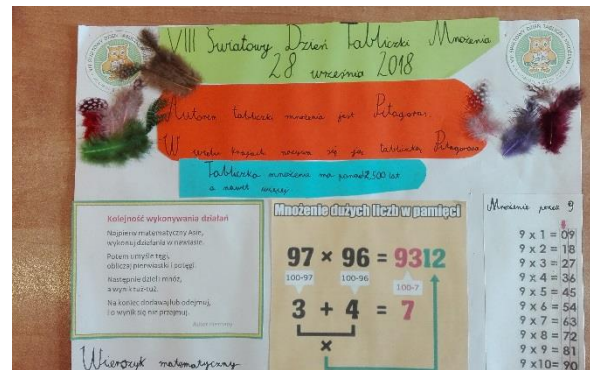 VIII Światowy Dzień Tabliczki Mnożenia
28 września 2018
Autorem tabliczki mnożenia jest Pitagoras.
W wielu krajach nazywa się ją tabliczką Pitagorasa
Tabliczka mnożenia ma ponad 2.500 lat
a nawet więcej
Kolejność wykonywania działań
Najpierw matematyczny Asie,
wykonuj działania w nawiasie.
Potem umyśle tęgi,
obliczaj pierwiastki i potęgi.
Następnie dziel i mnóż,
a wynik tuż-tuż.
Na koniec dodawaj lub odejmuj,
i o wynik się nie przejmuj.
Wierszyk matematyczny
Mnożenie dużych liczb w pamięci
97 × 96 = 9312
100-97 100-96 100-7
3 + 4 = 7
×
Mnożenie przez 9
9 x 1 = 09
9 x 2 = 18
9 x 3 = 27
9 x 4 = 36
9 x 5 = 45
9 x 6 = 54
9 x 7 = 63
9 x 8 = 72
9 x 9 = 81
9 x10= 90